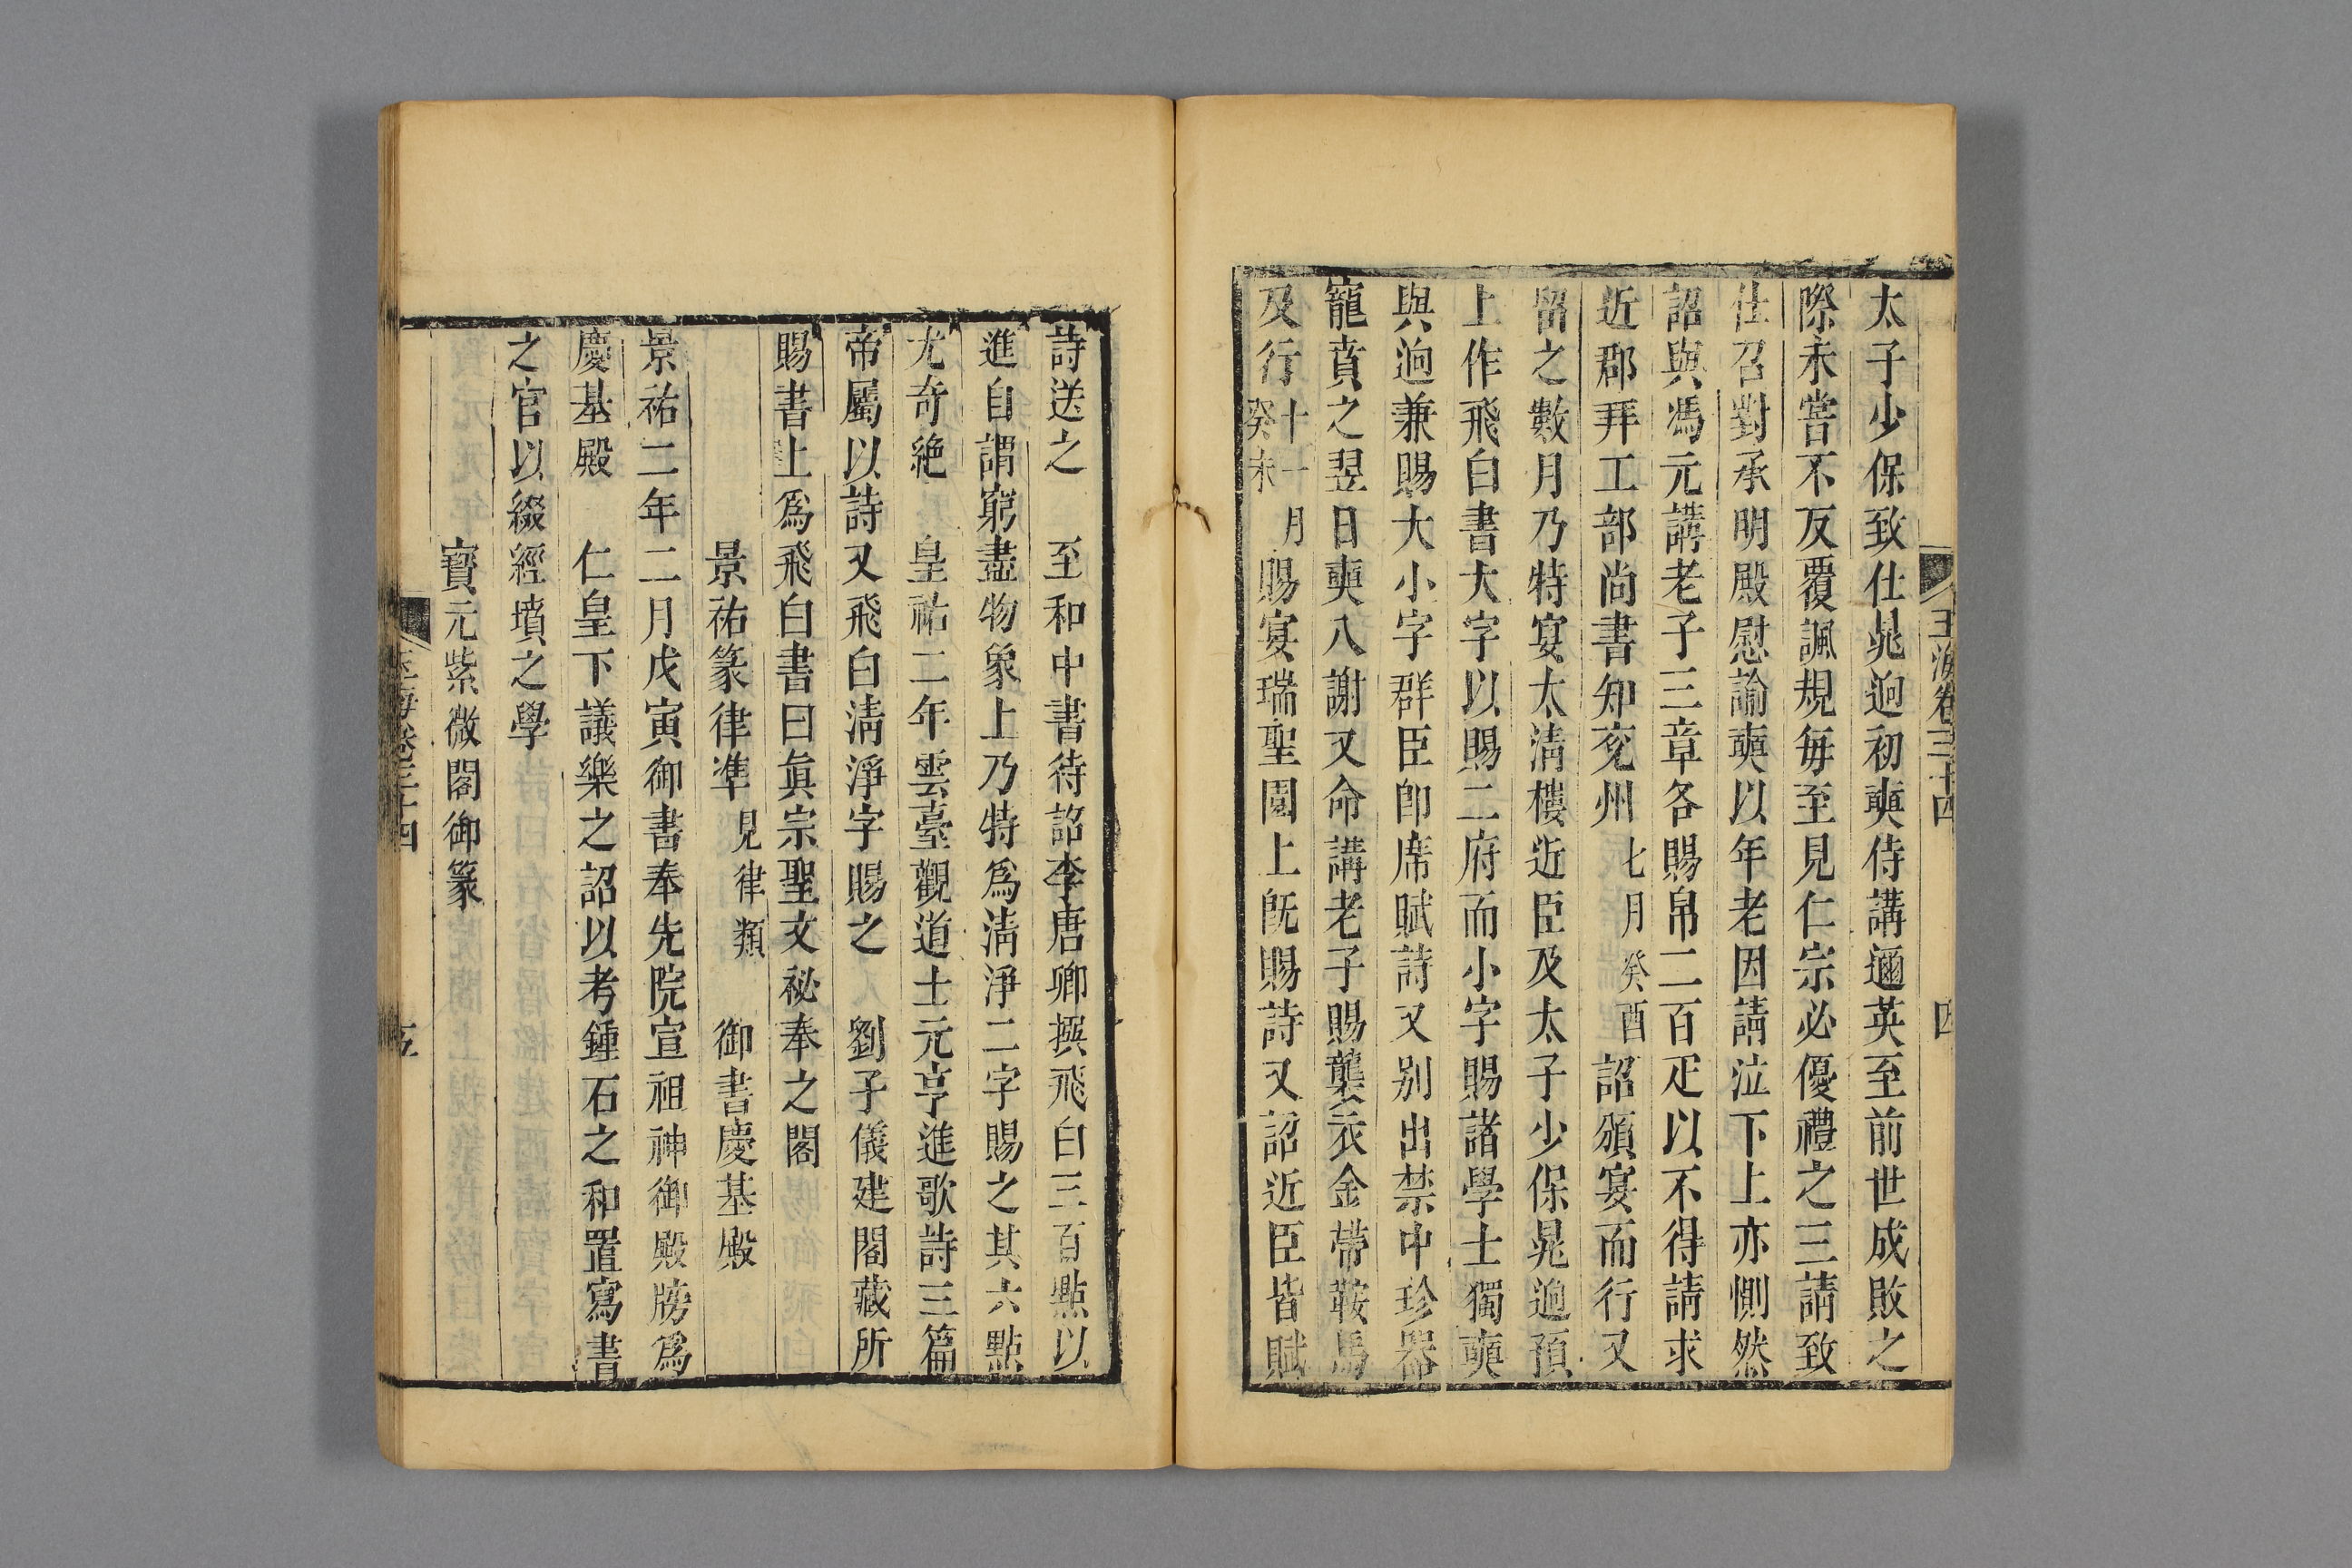 太子少保致仕晁迥初奭侍講邇英至前世成敗之
際未嘗不反覆諷規每至見仁宗必優禮之三請致
仕召對承明殿慰諭奭以年老因請泣下上亦惻然
詔與馮元講老子三章各賜帛二百疋以不得請求
近郡拜工部尚書知兗州七月癸酉詔頒宴而行又
留之數月乃特宴太淸樓近臣及太子少保晁迥預
上作飛白書大字以賜二府而小字賜諸學士獨奭
與迥兼賜大小字群臣卽席賦詩又别出禁中珍器
寵賁之翌日奭入謝又命講老子賜襲衣金帶鞍馬
及行十一月癸未賜宴瑞聖園上旣賜詩又詔近臣皆賦
玉海卷三十四
四
詩送之　至和中書待詔李唐卿撰飛白三百點以
進自謂窮盡物象上乃特爲淸淨二字賜之其六點
尤奇絶　皇祐二年雲臺觀道士元亨進歌詩三篇
帝屬以詩又飛白淸淨字賜之　劉子儀建閣藏所
賜書上爲飛白書曰眞宗聖文祕奉之閣
景祐篆律準見律類　御書慶基殿
景祐二年二月戊寅御書奉先院宣祖神御殿牓爲
慶基殿　仁皇下議樂之詔以考鍾石之和置寫書
之官以綴經墳之學
寶元紫微閣御篆
玉海卷三十四
五